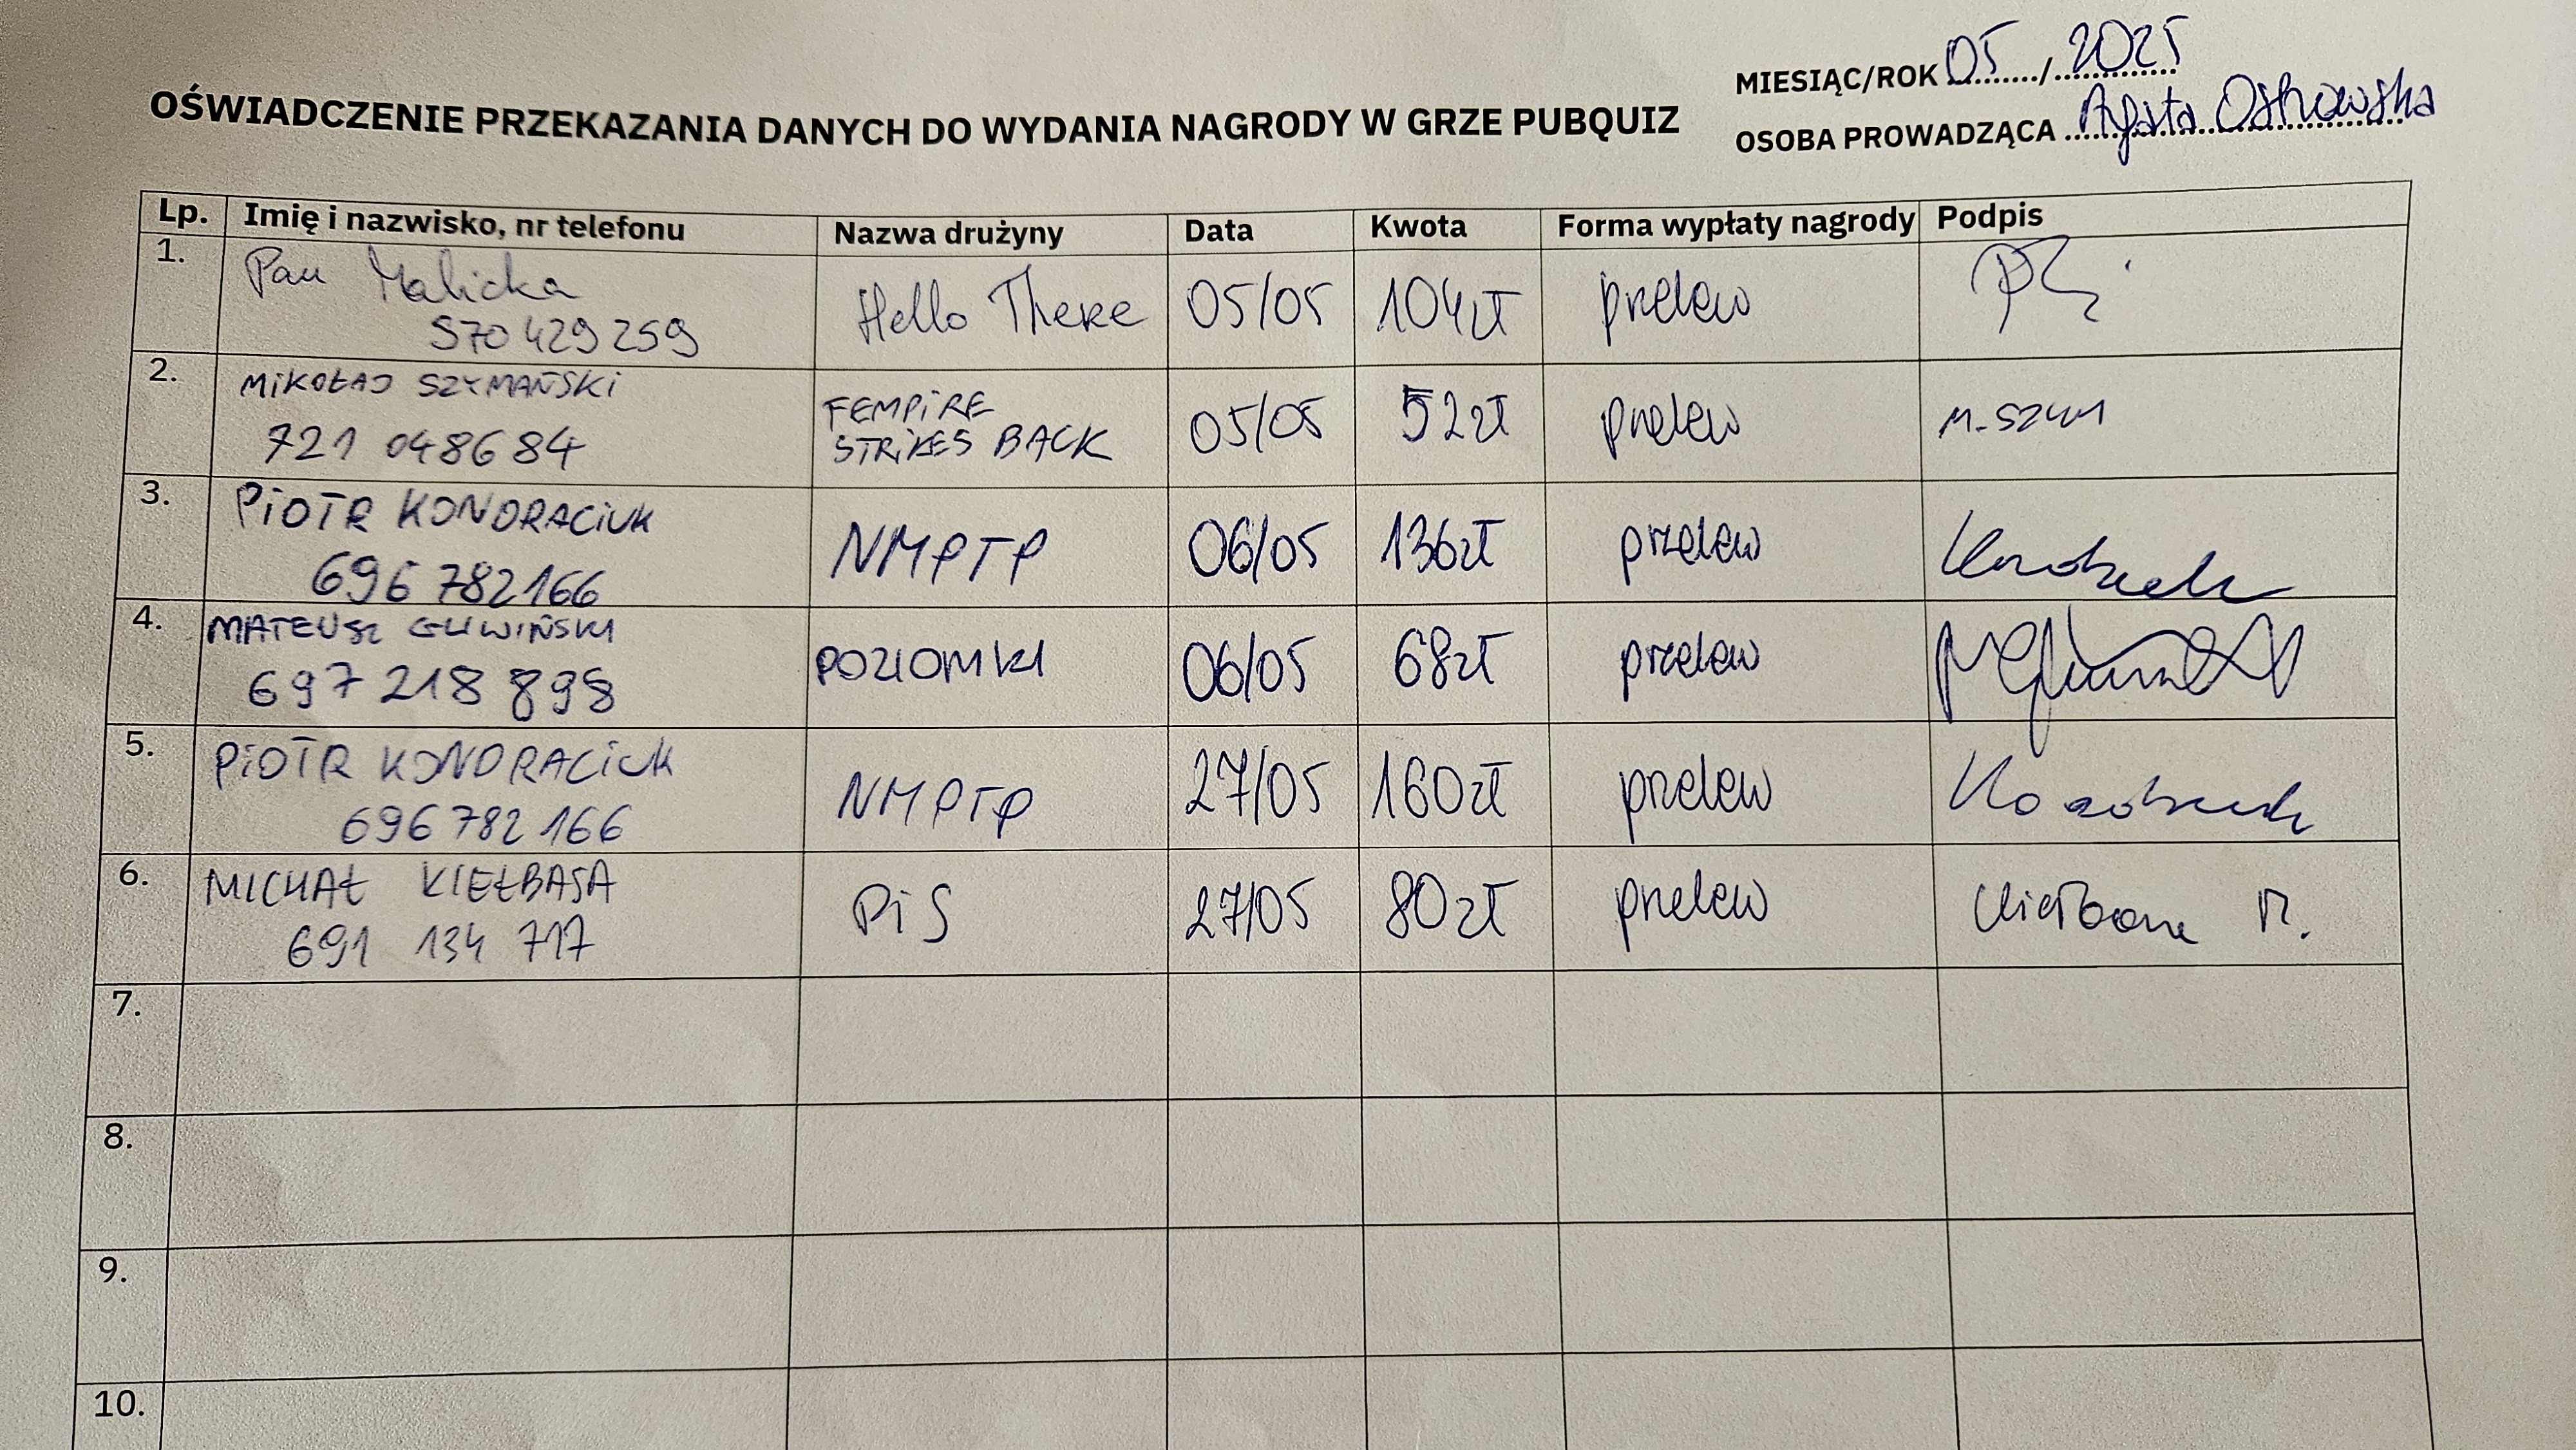 MIESIĄC/ROK 05/2025
OŚWIADCZENIE PRZEKAZANIA DANYCH DO WYDANIA NAGRODY W GRZE PUBQUIZ
OSOBA PROWADZĄCA Agata Ostrowska
Lp. Imię i nazwisko, nr telefonu Nazwa drużyny Data Kwota Forma wypłaty nagrody Podpis
1. Malicka
570 429 259 Hello There 05/05 104zł przelew
2. MIKOŁAJ SZYMAŃSKI
721 048684 FEMPIRE
STRIKES BACK 05/05 52zł przelew M. SZYM
3. PIOTR KONDRACIUK
696 782166 NMPTP 06/05 136zł przelew
4. MATEUSZ GLIWIŃSKI
697 218 898 POZIOMKI 06/05 68zł przelew
5. PIOTR KONDRACIUK
696 782 166 NMPTP 27/05 160zł przelew
6. MICHAŁ KIEŁBASA
691 134 717 PiS 27/05 80zł przelew Kiełbasa M.
7.
8.
9.
10.